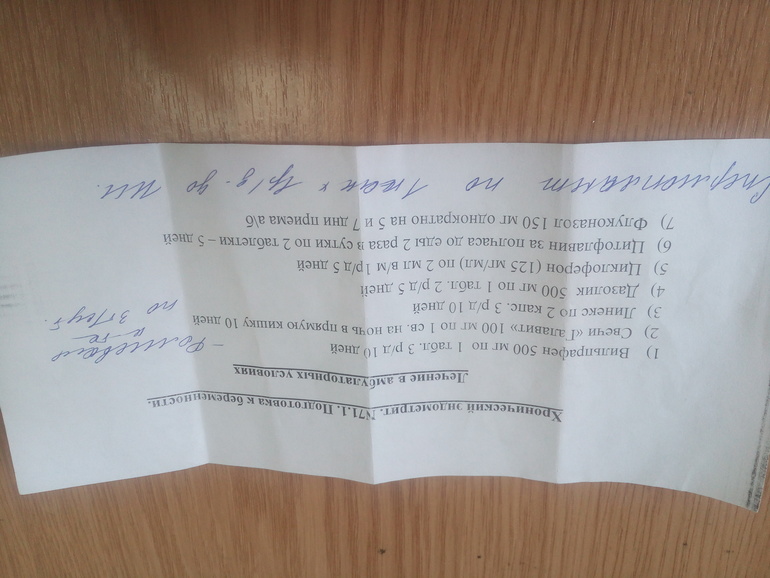 Хронический эндометрит. N71.1. Подготовка к беременности.
Лечение в амбулаторных условиях
1) Вильпрафен 500 мг по 1 табл. 3 р/д 10 дней
2) Свечи «Галавит» 100 мг по 1 св. на ночь в прямую кишку 10 дней
3) Линекс по 2 капс. 3 р/д 10 дней
4) Дазолик 500 мг по 1 табл. 2 р/д 5 дней
5) Циклоферон (125 мг/мл) по 2 мл в/м 1р/д 5 дней
6) Цитофлавин за полчаса до еды 2 раза в сутки по 2 таблетки – 5 дней
7) Флуконазол 150 мг однократно на 5 и 7 дни приема а/б
– Фолиевая
к-та
по 3
по 1 × до